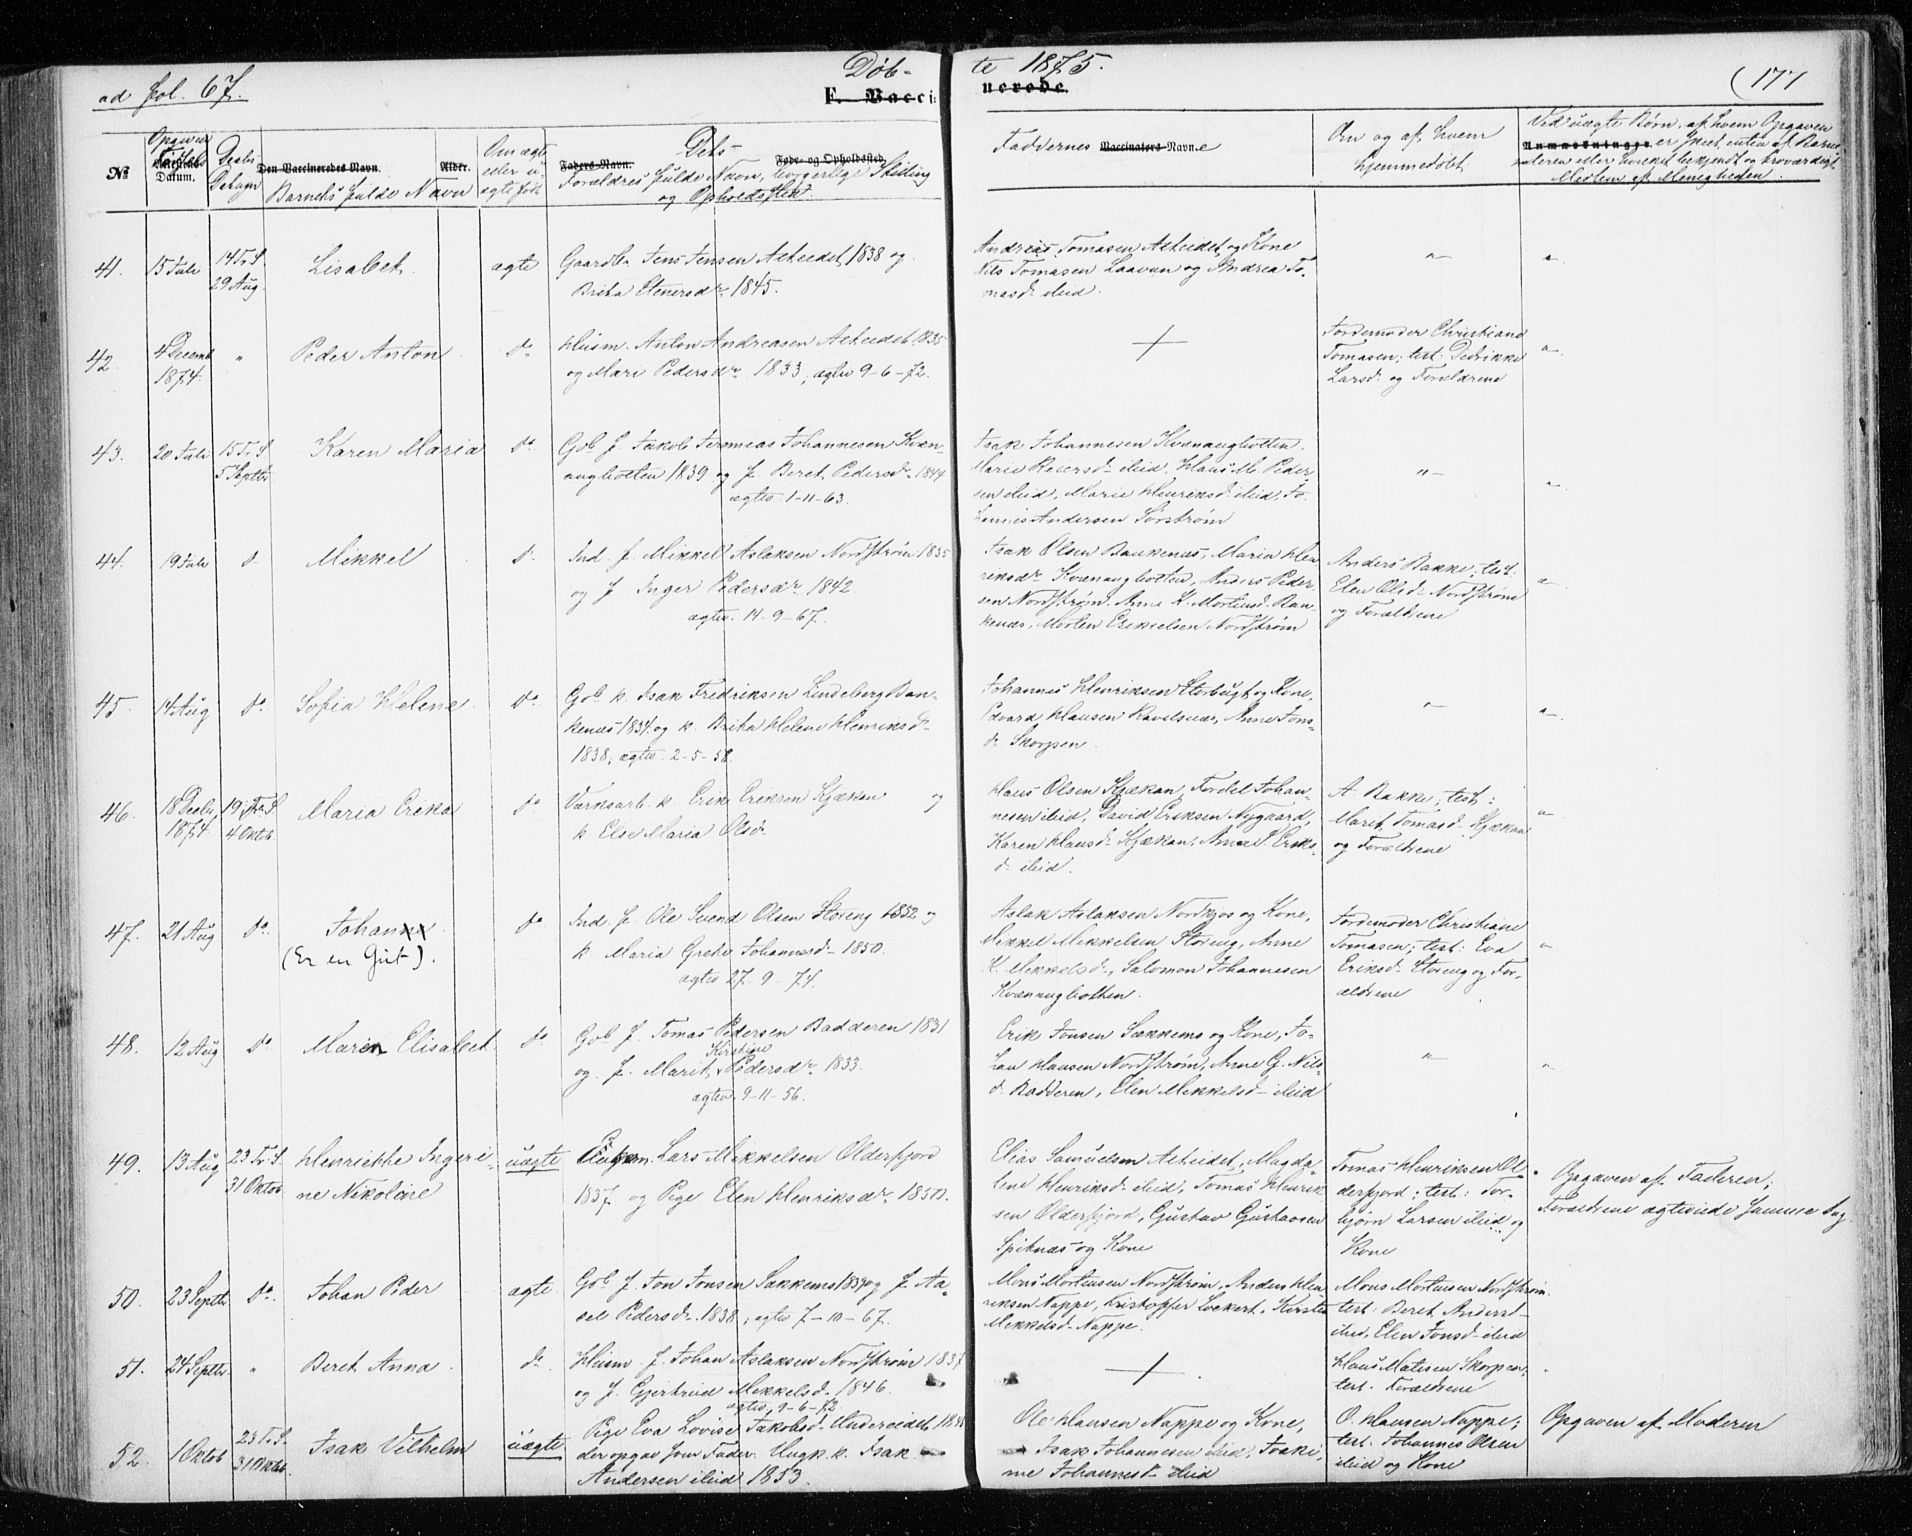 ad fol. 67.
Døb-
te 1875.
(177
F. Vacci-
nerede.
Opgaver
Fødsels
Datum.
№
Daabs
Datum
Den Vaccineredes Navn.
Alder.
Barnets fulde Navn
Om ægte
eller u-
ægte født
Dets
Faders-Navn.
Føde- og Opholdssted
Forældres fulde Navn, borgerlige Stilling
og Opholdssted.
Faddernes Vaccinators-Navne
Om og af hvem
hjemmedøbt
Ved uægte Børn, af hvem Opgaven
Anmærkninger
er skeet, enten af Barne-
faderen eller hvilket bekjendt og troværdigt
Medlem af Menigheden.
41.
15 Juli
14 Tr. S.
29 Aug.
Lisabet
ægte
Gaardbr. Jens Jensen Alteidet 1838 og
Brita Etenersdr. 1845.
Andreas Tomasen Alteidet og Kone
Nils Tomasen Laavan og Andrea To-
masd. ibid.
42.
4 Decemb
1874.
"
Peder Anton
do
Husm. Anton Andreasen Alteidet 1835
og Mari Pedersdr. 1833, ægtev. 9-6-72.
Jordemoder Christiane
Tomasen; test: Didrikke
Larsd. og Forældrene
43.
20 Juli
15 Tr. S
5 Septbr
Karen Maria
do
Gob. f. Jakob Jeremias Johannesen Kvæn-
angbotten 1839 og f. Beret Pedersdr. 1844
ægtev. 1-11-63.
Isak Johannesen Kvænangbotten,
Marie Peiersd. ibid, Hans M. Peder-
sen ibid, Marie Henriksd. ibid, Jo-
hannes Andersen Sørstrøm
44.
19 Juli
do
Mikkel
do
Ind. f. Mikkel Aslaksen Nordstrøm 1835
og f. Inger Pedersdr. 1842.
ægtev. 14-9-67.
Isak Olsen Baukenæs, Maria Hen-
riksdr. Kvænangbotten, Anders Peder-
sen Nordstrøm, Anne K. Mortensd. Bau-
kenæs, Morten Esekielsen Nordstrøm
Anders Bakke; test:
Elen Olsd. Nordstrøm
og Forældrene
45.
14 Aug
do
Sofia Helene
do
Gob. k. Isak Fredriksen Lindeberg Bau-
kenæs 1834 og k. Brita Helene Henriksd.
1838, ægtev. 2-5-58.
Johannes Henriksen Storbugt og Kone,
Edvard Hansen Ravelsnæs, Anne Jons-
d. Skorpen.
46.
18 Decbr,
1874
19 Tr. S
4 Oktob
Maria Erika
do
Varnsarb. k. Erik Eriksen Kjækan og
k. Else Maria Olsdr.
Hans Olsen Kjækan, Fordel Johan-
nesen ibid, David Eriksen Nygaard,
Karen Hansd. Kjækan, Anne S. Eriks-
d. ibid.
A. Bakke; test:
Maret Tomasd. Kjækan
og Forældrene
47.
21 Aug
do
Johanne
(Er en Gut).
do
Ind. f. Ole Svend Olsen Storeng 1852 og
k Maria Grete Johannesd. 1850.
ægtev. 27-9-74.
Aslak Aslaksen Nordkjos og Kone,
Mikkel Mikkelsen Storeng, Anne
K. Mikkelsd., Salomon Johannesen
Kvænangbotten.
Jordemoder Christiane
Tomasen; test: Eva
Eriksd. Storeng og For-
ældrene
48.
12 Aug
do
Maren Elisabet
do
Gob f. Tomas Pedersen Badderen 1831
Kirstine
og f. Marit Pedersdr. 1833.
ægtev. 9-11-56.
Erik Jonsen Sækkemo og Kone, Jo-
han Hansen Nordstrøm, Anne G. Nils-
d. Badderen, Elen Mikkelsd. ibid
49.
13 Aug
23 Tr. S.
31 Oktob.
Henriette Ingeri-
ne Nikoline
uægte
Lars Mikkelsen Olderfjord
1837 og Pige Elen Henriksdr. 1850.
Elias Samuelsen Alteidet, Magda-
lene Henriksd. ibid, Tomas Henrik-
sen Olderfjord, Gustav Gustavsen
Spiknæs og Kone
Tomas Henriksen Ol-
derfjord; test: Tor-
bjørn Larsen ibid og
Kone
Opgaven af Faderen;
Forældrene ægteviede samme Dag
50.
23 Septbr
do
Johan Peder
ægte
Gob. f. Jon Jonsen Sækkemo 1834 og f. Aa-
sel Pedersd. 1838, ægtev 7-10-67.
Mons Mortensen Nordstrøm, Anders Hen-
riksen Nappe, Kristoffer Lockert, Kirsten
Mikkelsd. Nappe.
Mons Mortensen Nordstrøm
test: Beret Andersd.
ibid, Elen Jonsd. ibid
51.
24 Septbr
"
Beret Anna
do
Husm. f. Johan Aslaksen Nordstrøm 1837
og f. Gjertrud Mikkelsd. 1846.
ægtev. 9-6-72.
Hans Matisen Skorpen;
test. Forældrene
52.
1 Oktob
23 Tr. S.
31 Oktob.
Isak Vilhelm
uægte
Pige Eva Lovise Jakobsd. Undereidet 1848
der opgav som Fader: Ungk. k. Isak
Andersen ibid 1853.
Ole Hansen Nappe og Kone,
Isak Johannesen ibid, Joaki-
me Johannesd. ibid
O. Hansen Nappe;
test. Johannes Olsen
ibid og Kone
Opgaven af Moderen